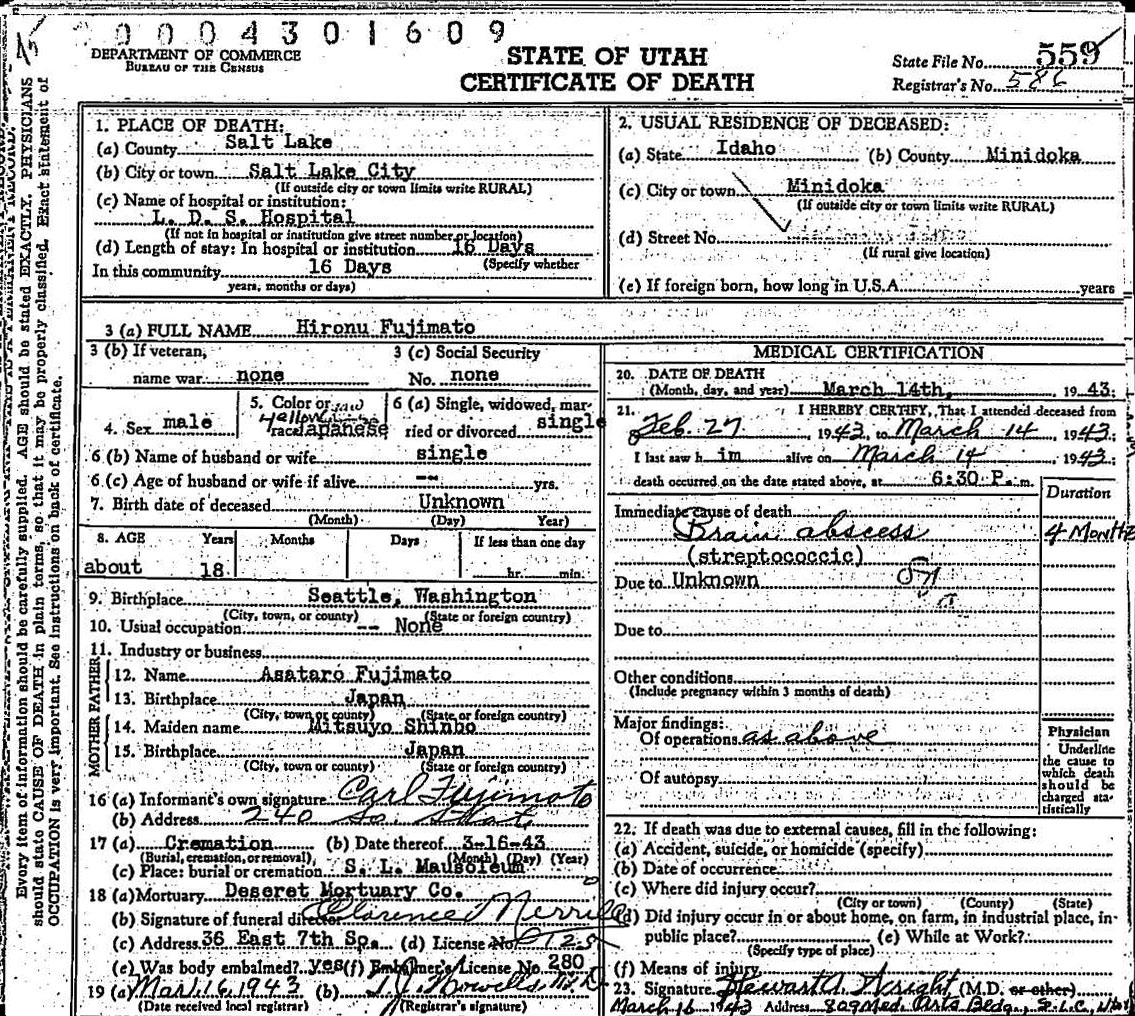 0004301609
DEPARTMENT OF COMMERCE
BUREAU OF THE CENSUS
STATE OF UTAH
CERTIFICATE OF DEATH
State File No. 559
Registrar's No. 586
Every item of information should be carefully supplied. AGE should be stated EXACTLY. PHYSICIANS
should state CAUSE OF DEATH in plain terms, so that it may be properly classified. Exact statement of
OCCUPATION is very important. See instructions on back of certificate.
1. PLACE OF DEATH:
(a) County Salt Lake
(b) City or town Salt Lake City
(If outside city or town limits write RURAL)
(c) Name of hospital or institution:
L. D. S. Hospital
(If not in hospital or institution give street number or location)
(d) Length of stay: In hospital or institution 16 Days
(Specify whether
In this community 16 Days
years, months or days)
2. USUAL RESIDENCE OF DECEASED:
(a) State Idaho (b) County Minidoka
(c) City or town Minidoka
(If outside city or town limits write RURAL)
(d) Street No.
(If rural give location)
(e) If foreign born, how long in U.S.A. years
3 (a) FULL NAME Hironu Fujimato
3 (b) If veteran, name war none
3 (c) Social Security No. none
4. Sex male
5. Color or race yellow Japanese
6 (a) Single, widowed, married or divorced single
6 (b) Name of husband or wife single
6 (c) Age of husband or wife if alive -- yrs.
7. Birth date of deceased Unknown
(Month) (Day) Year)
8. AGE Years Months Days If less than one day
about 18 hr. min.
9. Birthplace Seattle, Washington
(City, town, or county) (State or foreign country)
10. Usual occupation -- None
11. Industry or business
FATHER
12. Name Asataro Fujimato
13. Birthplace Japan
(City, town or county) (State or foreign country)
MOTHER
14. Maiden name Mitsuyo Shinbo
15. Birthplace Japan
(City, town or county) (State or foreign country)
16 (a) Informant's own signature Carl Fujimoto
(b) Address 240 So.
17 (a) Cremation (b) Date thereof 3-16-43
(Burial, cremation, or removal) (Month) (Day) (Year)
(c) Place: burial or cremation S. L. Mausoleum
18 (a) Mortuary Deseret Mortuary Co.
(b) Signature of funeral director Clarence Merrill
(c) Address 36 East 7th So. (d) License No. 125
(e) Was body embalmed? yes (f) Embalmer's License No. 280
19 (a) Mar. 16, 1943 (b) T.J. Howells M.D.
(Date received local registrar) (Registrar's signature)
MEDICAL CERTIFICATION
20. DATE OF DEATH
(Month, day, and year) March 14th, 1943.
21. I HEREBY CERTIFY, That I attended deceased from
Feb. 27 1943, to March 14, 1943.
I last saw him alive on March 14 1943.
death occurred on the date stated above, at 6:30 P.m.
Duration
Immediate cause of death
Brain abscess 4 Months
(streptococcic)
Due to Unknown
Due to
Other conditions
(Include pregnancy within 3 months of death)
Major findings:
Of operations as above
Of autopsy
Physician
Underline
the cause to
which death
should be
charged sta-
tistically
22. If death was due to external causes, fill in the following:
(a) Accident, suicide, or homicide (specify)
(b) Date of occurrence
(c) Where did injury occur?
(City or town) (County) (State)
(d) Did injury occur in or about home, on farm, in industrial place, in-
public place? (e) While at Work?
(Specify type of place)
(f) Means of injury
23. Signature Stewart A. Wright (M.D. or other)
March 16 1943 Address 809 Med. Arts Bldg., S.L.C., Utah